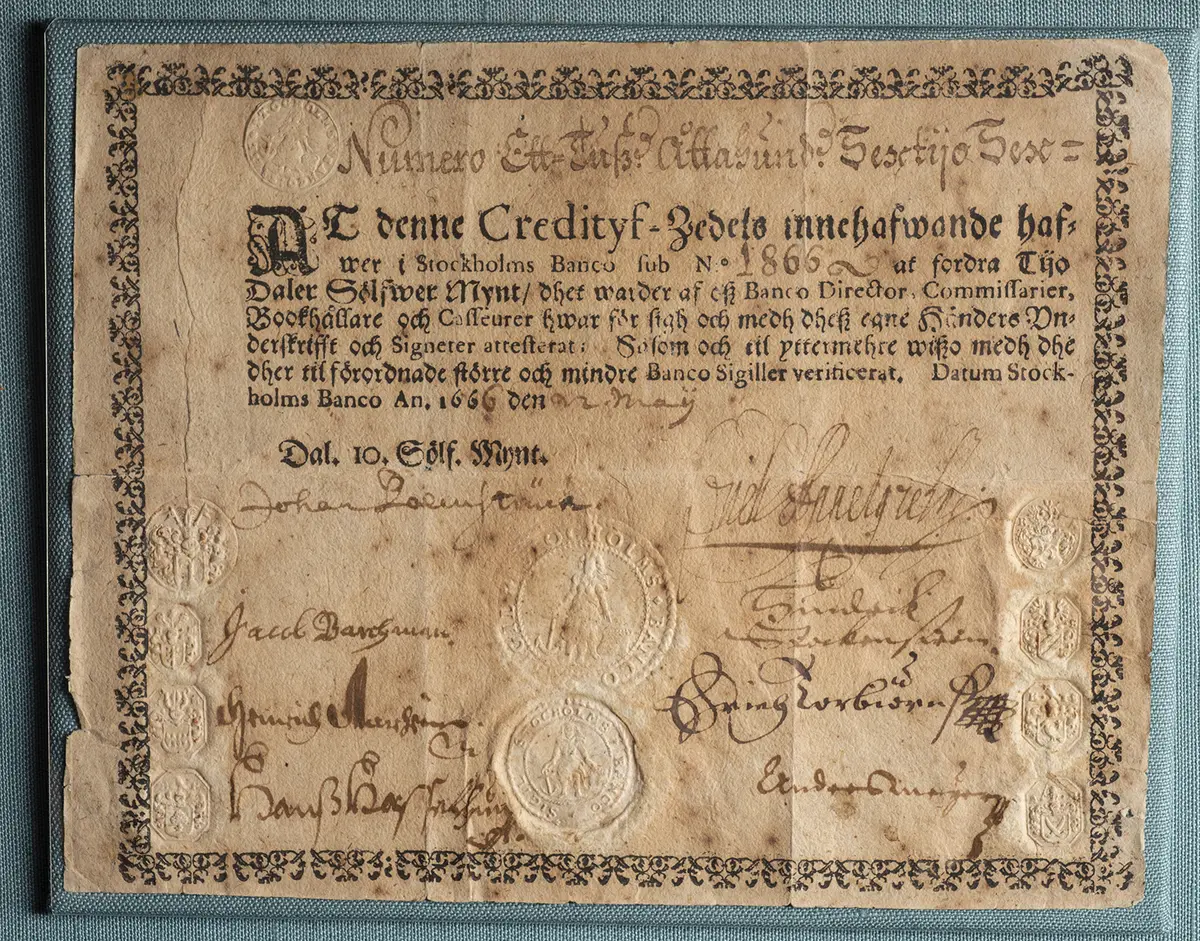 Numero Ett-Tuß: Åttahund: Sextijo Sex=
AT denne Credityf-Zedels innehafwande haf-
wer i Stockholms Banco sub N:o 1866 at fordra Tijo
Daler Sölfwer Mynt/ dhet warder af oß Banco Director, Commissarier,
Bookhållare och Casseurer hwar för sigh och medh dheß egne Händers Vn-
derskrifft och Signeter attesterat: Såsom och til yttermehre wißo medh dhe
dher til förordnade större och mindre Banco Sigiller verificerat. Datum Stock-
holms Banco An. 1666 den 12 May
Dal. 10. Sölf. Mynt.
Johan
STOCKHOLMS BANCO
Jacob Barchman
Hindrich
Erich Torbiörn
Heinrich
STOCKHOLMS BANCO
Anders
Hanß